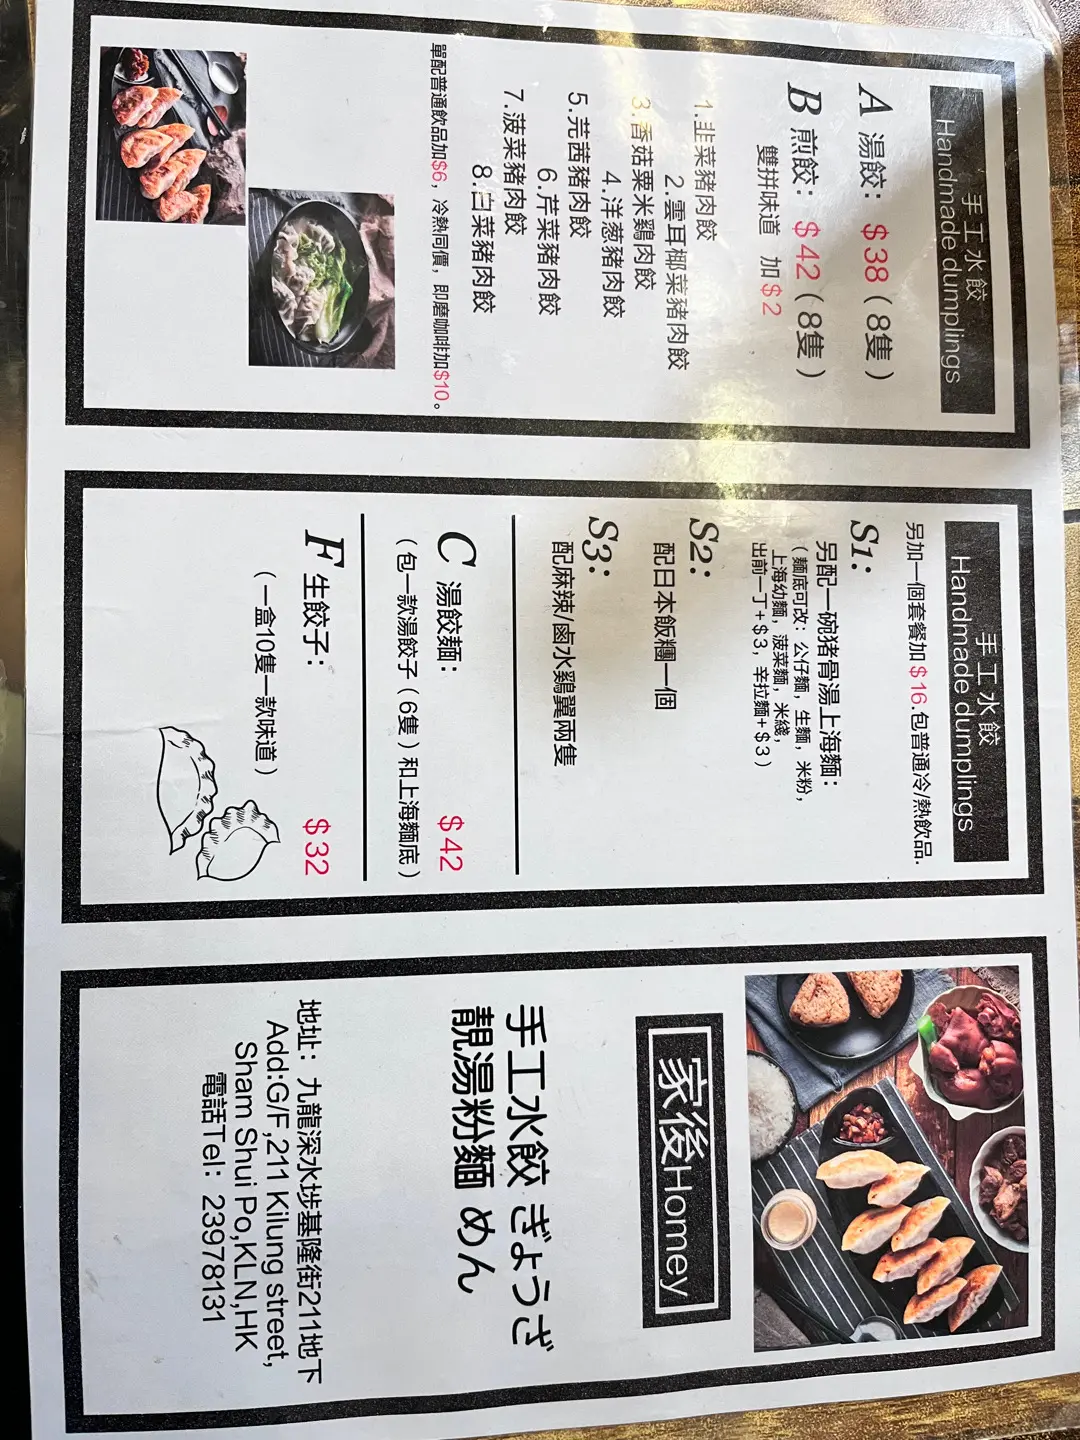 手工水餃
Handmade dumplings
A 湯餃：$38（8隻）
B 煎餃：$42（8隻）
雙拼味道 加$2
1.韭菜豬肉餃
2.雲耳椰菜豬肉餃
3.香菇粟米鷄肉餃
4.洋葱豬肉餃
5.芫茜豬肉餃
6.芹菜豬肉餃
7.菠菜豬肉餃
8.白菜豬肉餃
單配普通飲品加$6，冷熱同價，即磨咖啡加$10。
手工水餃
Handmade dumplings
另加一個套餐加$16.包普通冷/熱飲品.
S1:
另配一碗猪骨湯上海麵：
（麵底可改：公仔麵，生麵，米粉，
上海幼麵，菠菜麵，米綫，
出前一丁+$3，辛拉麵+$3）
S2:
配日本飯糰一個
S3:
配麻辣/鹵水鷄翼兩隻
C 湯餃麵： $42
（包一款湯餃子（6隻）和上海麵底）
F 生餃子： $32
（一盒10隻一款味道）
家後Homey
手工水餃 ぎょうざ
靚湯粉麵 めん
地址：九龍深水埗基隆街211地下
Add:G/F,211 Kilung street,
Sham Shui Po,KLN,HK
電話Tel：23978131